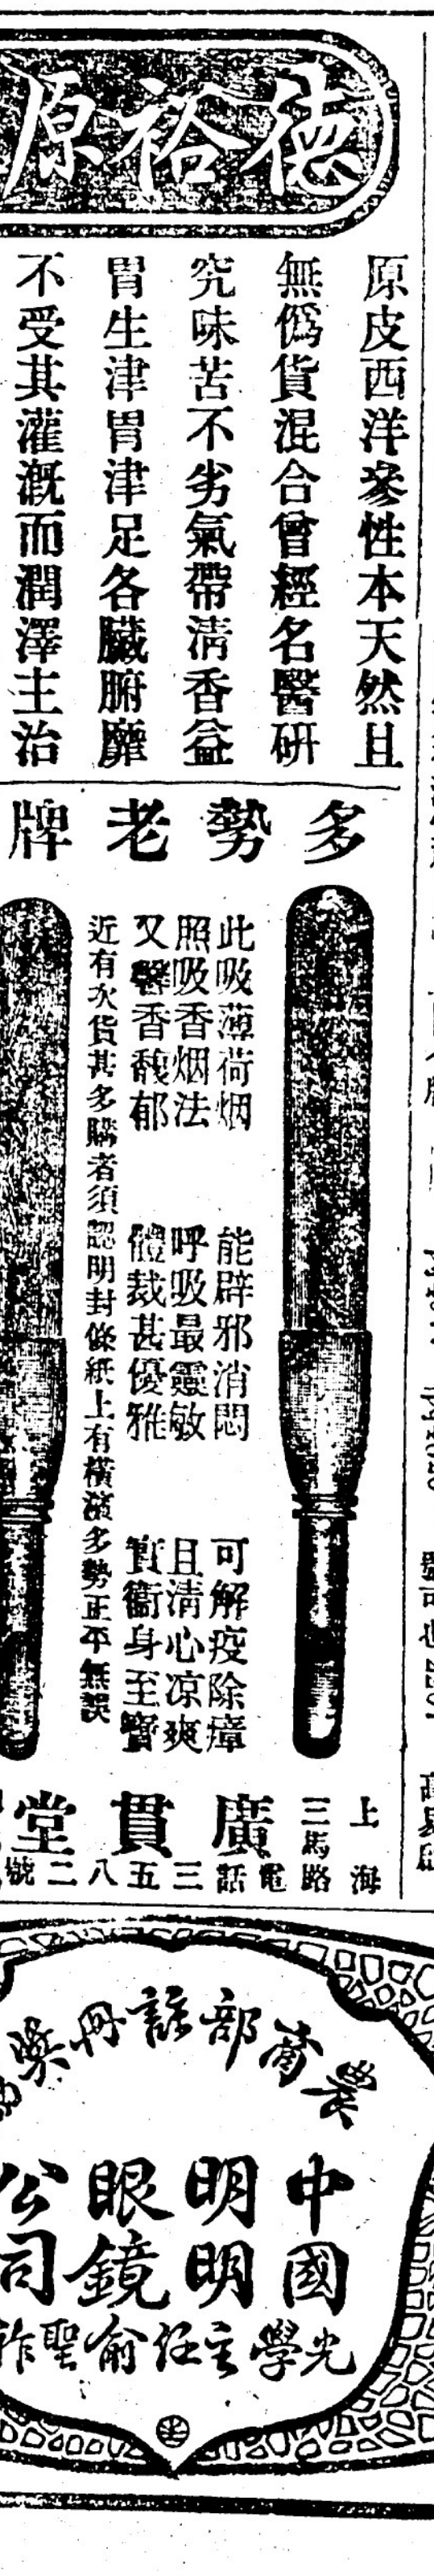 德裕原
原皮西洋參性本天然且
無僞貨混合曾經名醫研
究味苦不劣氣帶清香益
胃生津胃津足各臟腑靡
不受其灌漑而潤澤主治
多勢老牌
此吸薄荷烟 能辟邪消悶 可解疫除瘴
照吸香烟法 呼吸最靈敏 且清心凉爽
又馨香馥郁 體裁甚優雅 實衞身至寶
近有次貨甚多購者須認明封條紙上有橫濱多勢正平無誤
上海
三馬路
廣貫堂
電話三五八二號
農商部註冊
中國
明明
眼鏡
公司
光學主任俞聖祚